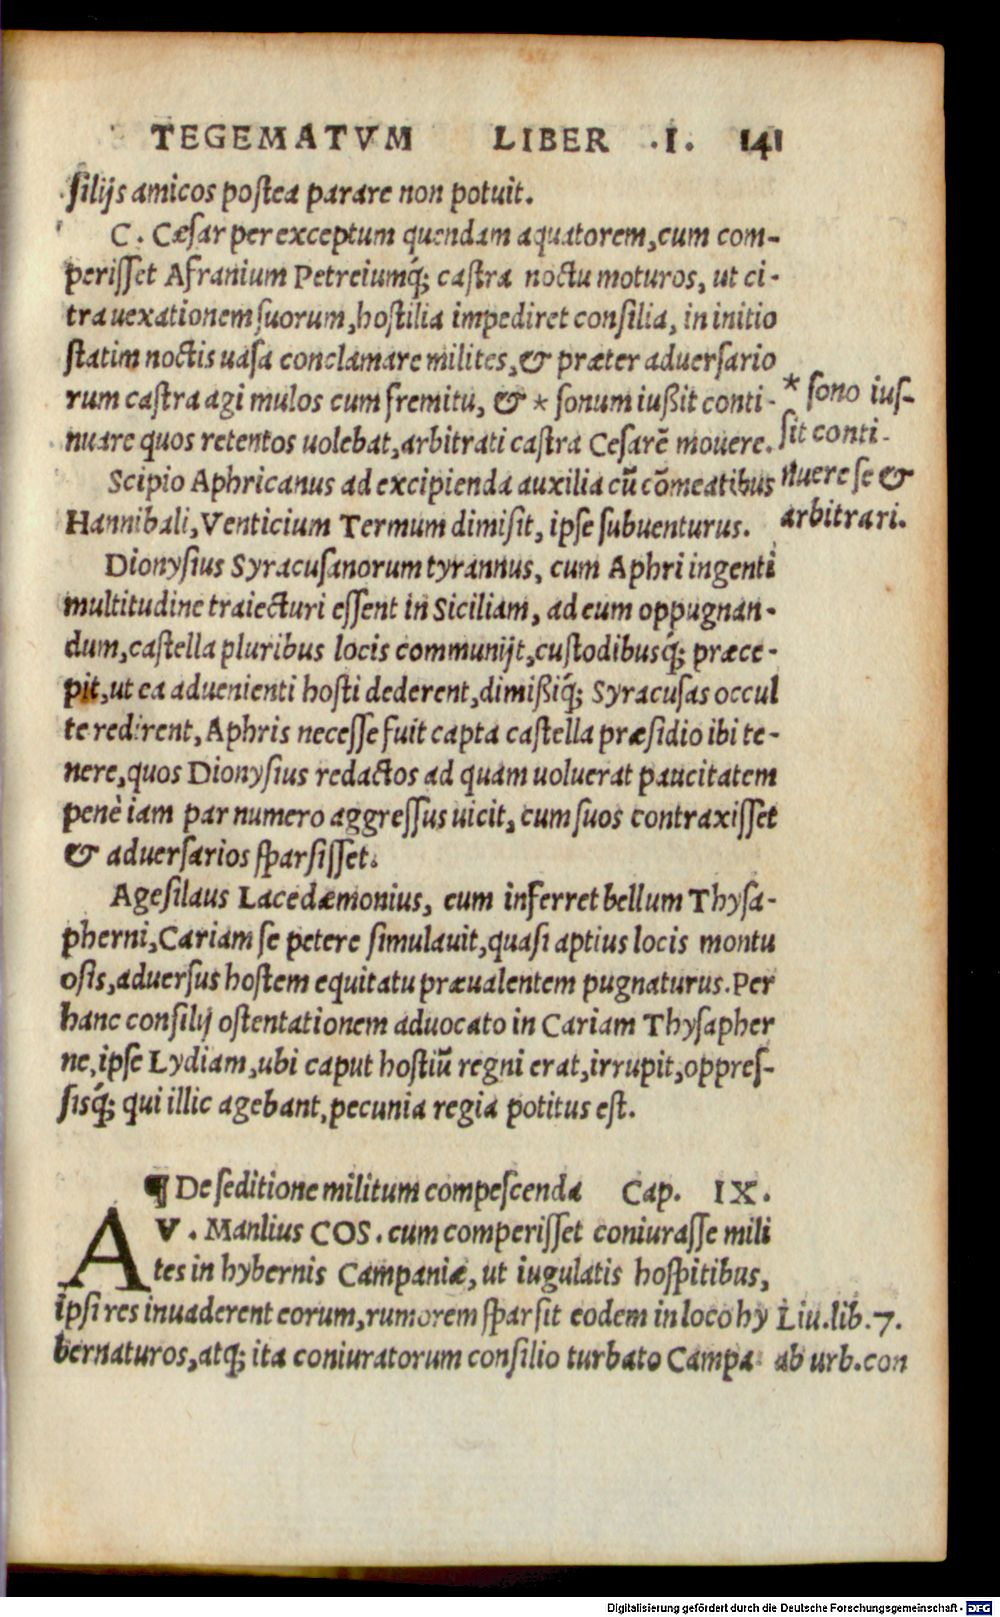 TEGEMATVM LIBER .I. 141
ſilijs amicos poſtea parare non potuit.
C. Cæſar per exceptum quendam aquatorem, cum com-
periſſet Afranium Petreiumq́; caſtra noctu moturos, ut ci-
tra uexationem ſuorum, hoſtilia impediret conſilia, in initio
ſtatim noctis uaſa conclamare milites, & præter aduerſario
rum caſtra agi mulos cum fremitu, & * ſonum iußit conti-
nuare quos retentos uolebat, arbitrati caſtra Ceſarē mouere.
* ſono iuſ-
ſit conti-
nuere ſe &
arbitrari.
Scipio Aphricanus ad excipienda auxilia cū cōmeatibus
Hannibali, Venticium Termum dimiſit, ipſe ſubuenturus.
Dionyſius Syracuſanorum tyrannus, cum Aphri ingenti
multitudine traiecturi eſſent in Siciliam, ad eum oppugnan-
dum, caſtella pluribus locis communijt, cuſtodibusq́; præce-
pit, ut ea aduenienti hoſti dederent, dimißiq́; Syracuſas occul
te redirent, Aphris neceſſe fuit capta caſtella præſidio ibi te-
nere, quos Dionyſius redactos ad quam uoluerat paucitatem
penè iam par numero aggreſſus uicit, cum ſuos contraxiſſet
& aduerſarios ſparſiſſet.
Ageſilaus Lacedæmonius, cum inferret bellum Thyſa-
pherni, Cariam ſe petere ſimulauit, quaſi aptius locis montu
oſis, aduerſus hoſtem equitatu præualentem pugnaturus. Per
hanc conſilij oſtentationem aduocato in Cariam Thyſapher
ne, ipſe Lydiam, ubi caput hoſtiū regni erat, irrupit, oppreſ-
ſisq́; qui illic agebant, pecunia regia potitus eſt.
¶ De ſeditione militum compeſcenda Cap. IX.
AV. Manlius COS. cum comperiſſet coniuraſſe mili
tes in hybernis Campaniæ, ut iugulatis hoſpitibus,
ipſi res inuaderent eorum, rumorem ſparſit eodem in loco hy
bernaturos, atq; ita coniuratorum conſilio turbato Campa
Liu. lib. 7.
ab urb. con
Digitalisierung gefördert durch die Deutsche Forschungsgemeinschaft - DFG